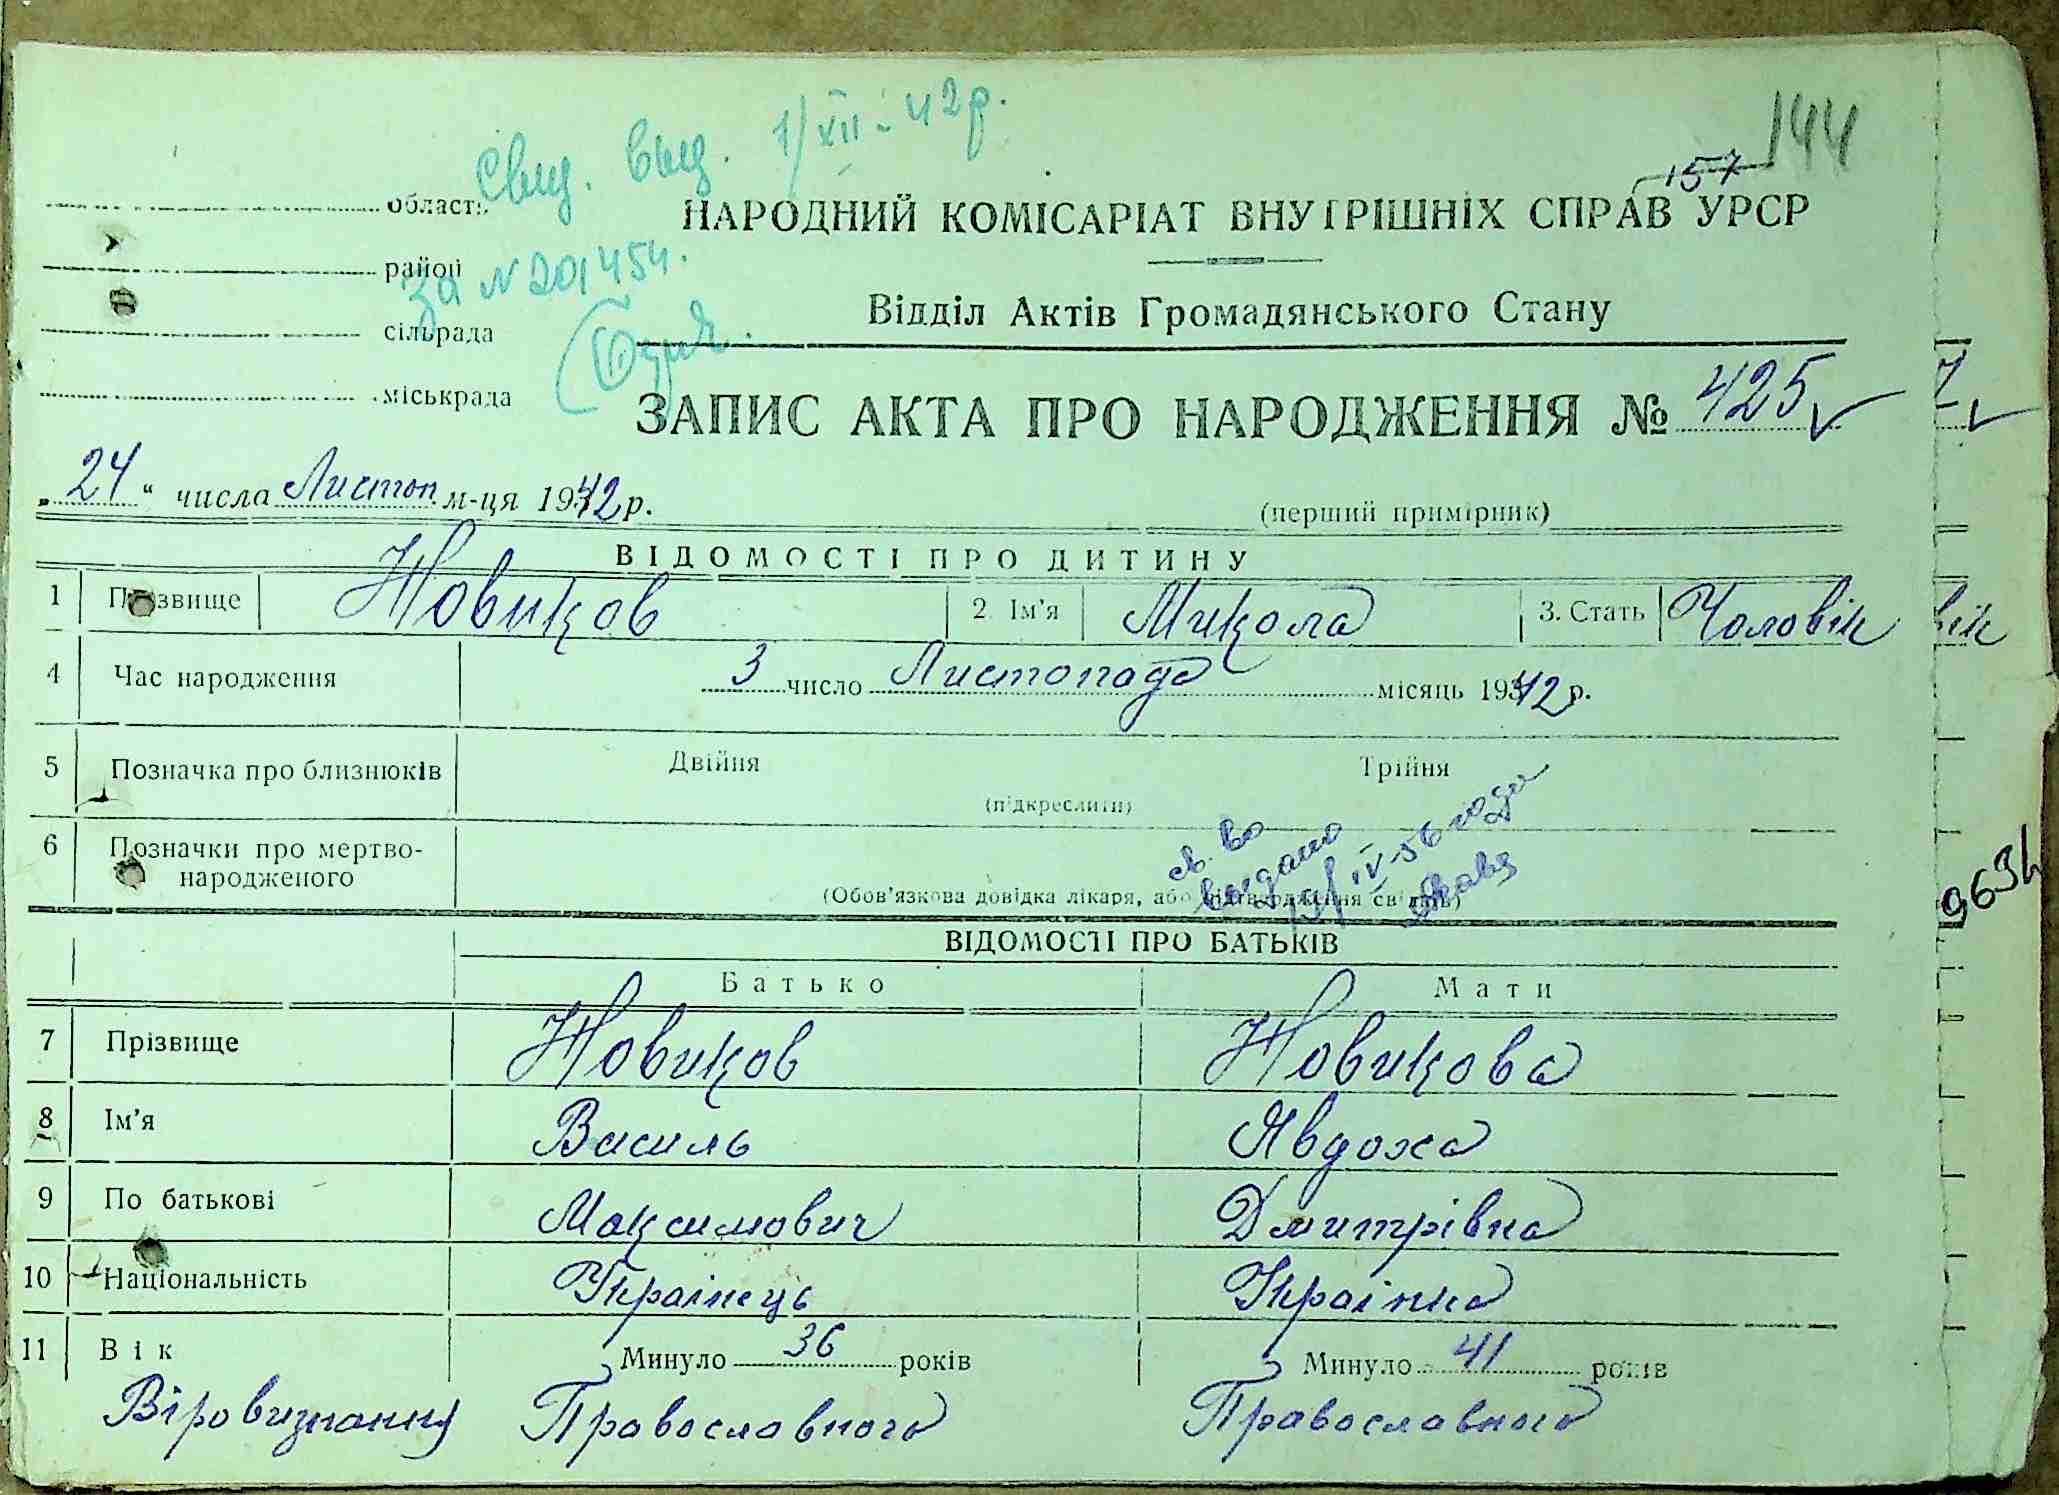 144
157
Свид. выд. 1/XII-42р.
за N 201454.
область
район
сільрада
міськрада
НАРОДНИЙ КОМІСАРІАТ ВНУТРІШНІХ СПРАВ УРСР
Відділ Актів Громадянського Стану
ЗАПИС АКТА ПРО НАРОДЖЕННЯ № 425
7
„24“ числа Листоп. м-ця 1942 р.
(перший примірник)
ВІДОМОСТІ ПРО ДИТИНУ
1 Прізвище Новиков 2. Ім'я Микола 3. Стать Чоловік
вік
4 Час народження 3 число Листопада місяць 1942 р.
5 Позначка про близнюків Двійня Трійня
(підкреслити)
6 Позначки про мертво-
народженого
(Обов'язкова довідка лікаря, або підтвердження свідків)
св. во
выдано
19/IV-56 года
9634
ВІДОМОСТІ ПРО БАТЬКІВ
Батько Мати
7 Прізвище Новиков Новикова
8 Ім'я Василь Явдоха
9 По батькові Максимович Дмитрівна
10 Національність Українець Українка
11 Вік Минуло 36 років Минуло 41 років
Віровизнання Православного Православного